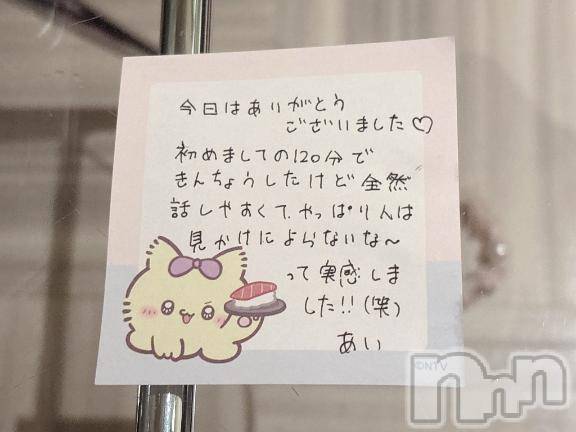 今日はありがとう
ございました♡
初めましての120分で
きんちょうしたけど全然
話しやすくて、やっぱり人は
見かけによらないな〜
って実感しま
した!!(笑)
あい
©NTV
nnn